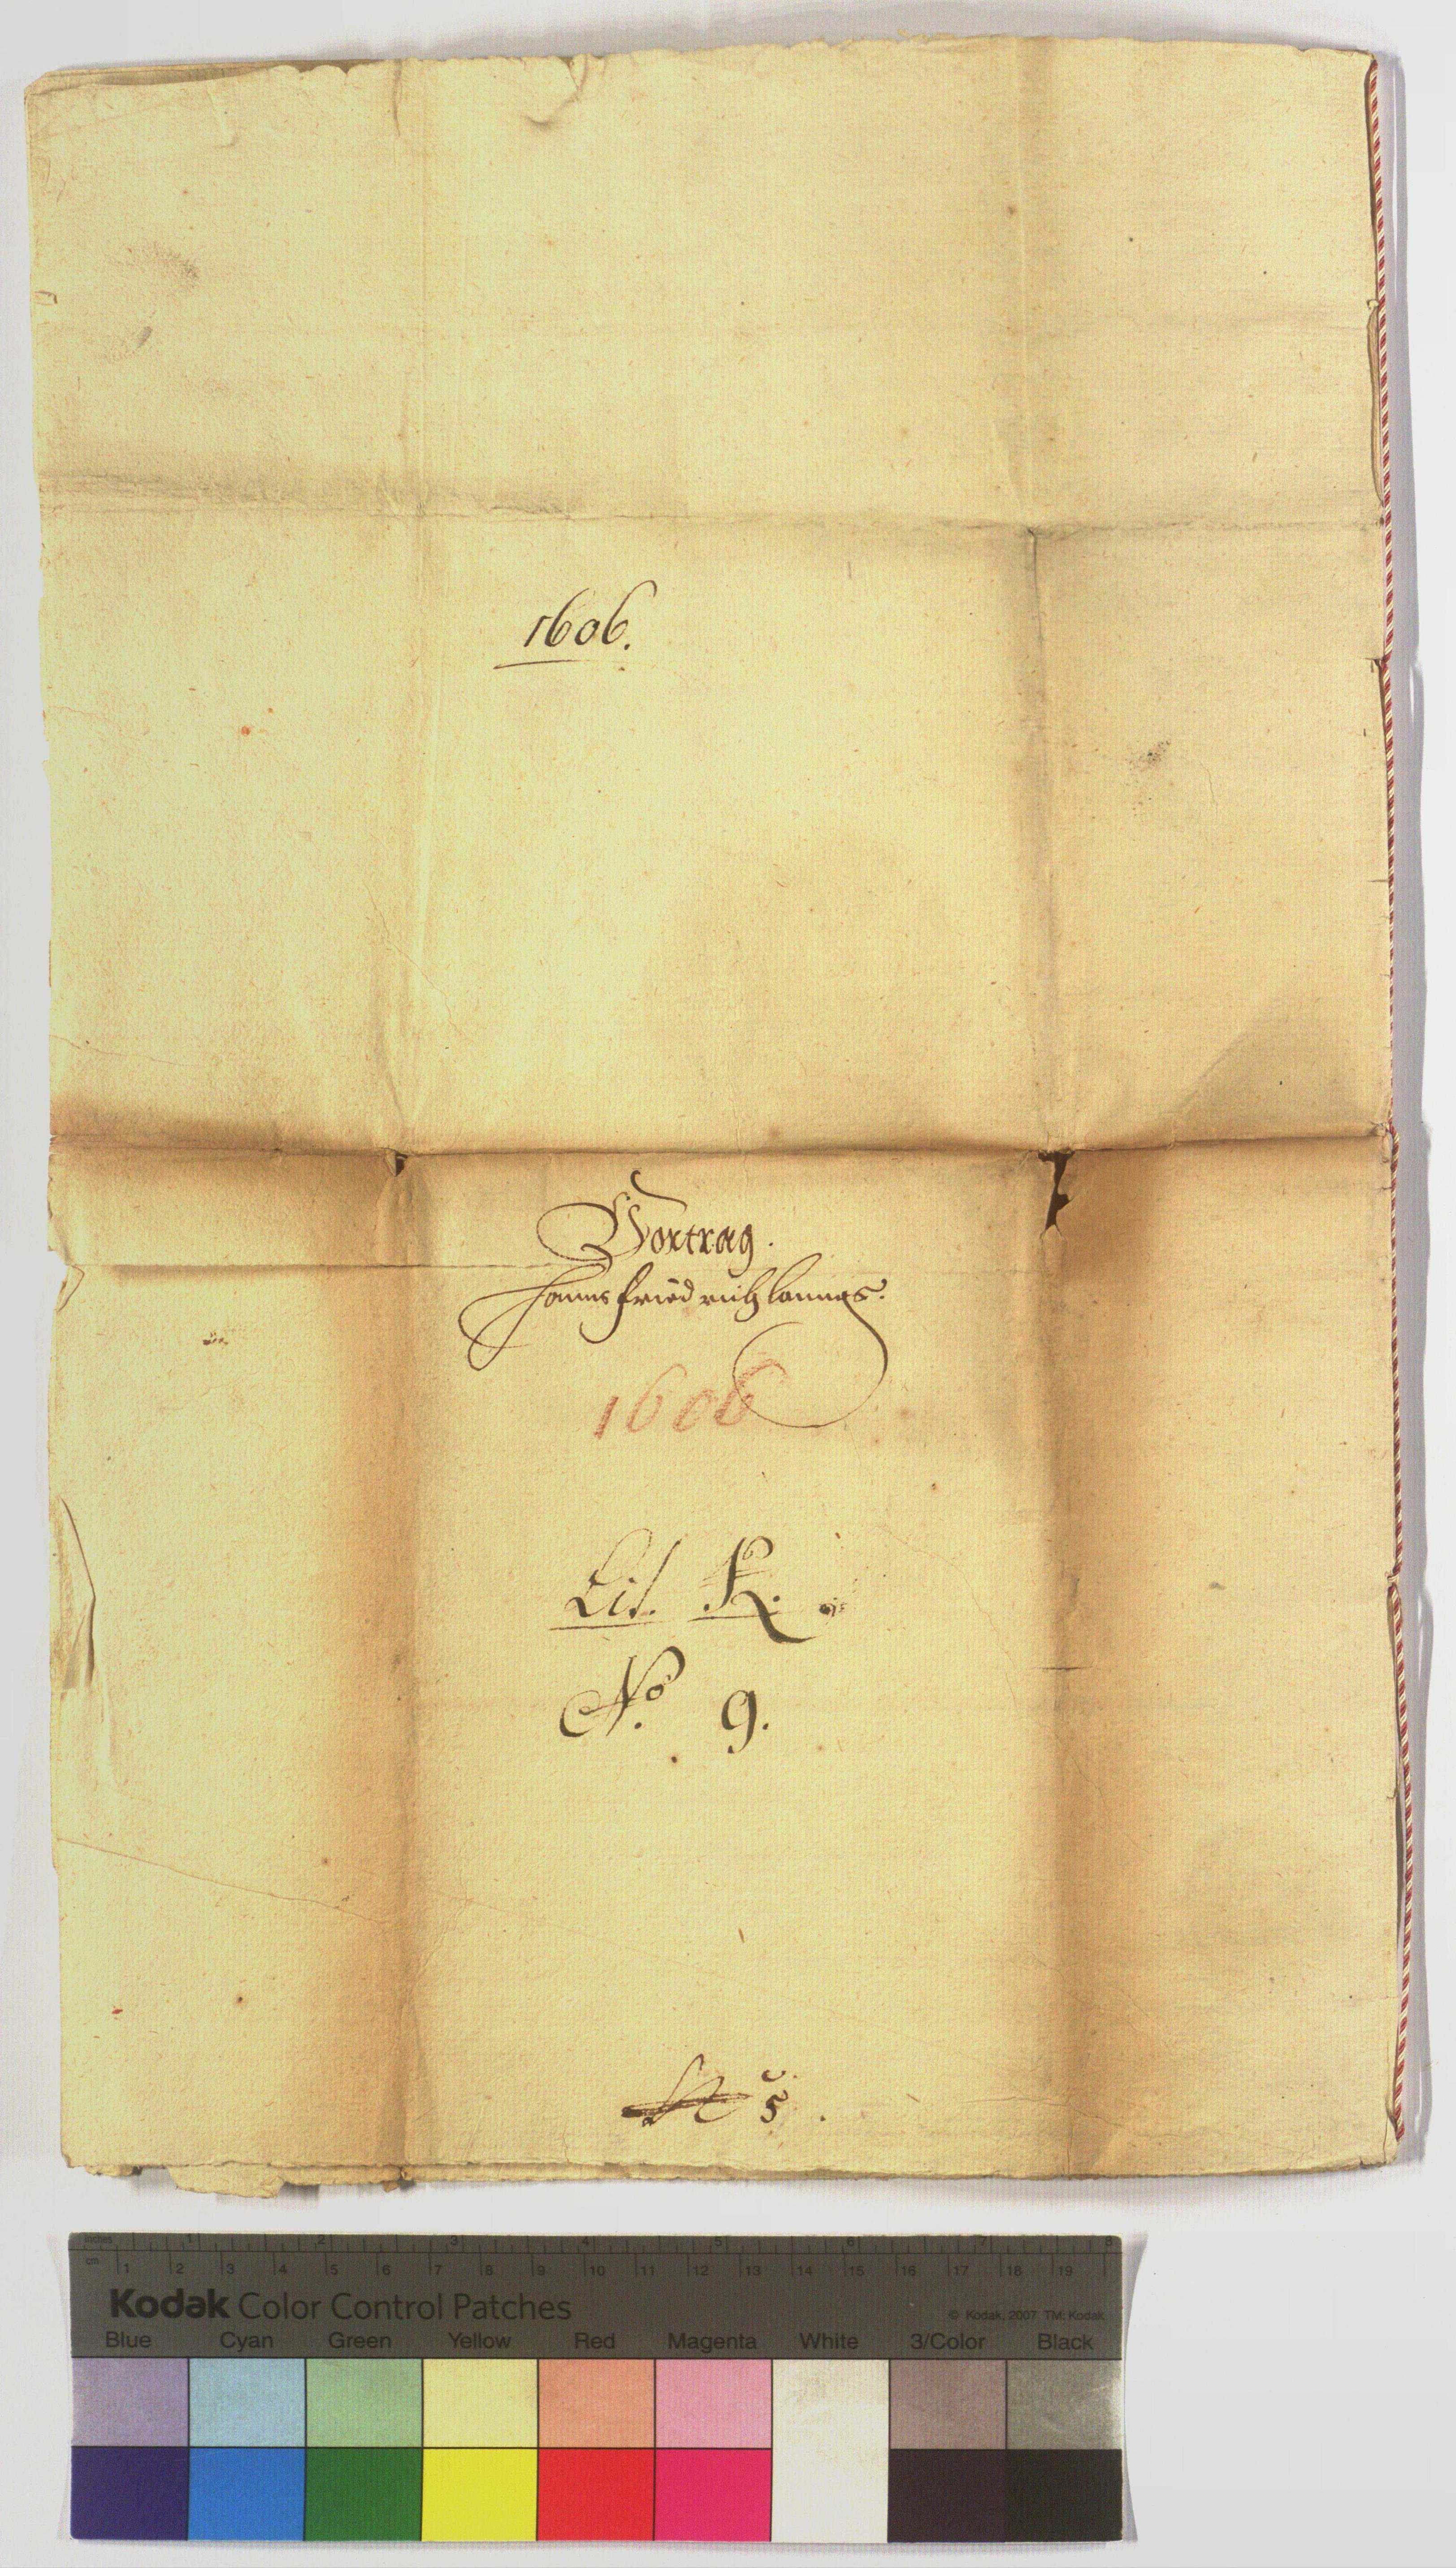 1606.
Vortrag.
Hanns Friedrich
1606
Lit. K.
No. 9.
5.
inches 1 2 3 4 5 6 7 8
cm 1 2 3 4 5 6 7 8 9 10 11 12 13 14 15 16 17 18 19
Kodak Color Control Patches © Kodak, 2007 TM: Kodak
Blue Cyan Green Yellow Red Magenta White 3/Color Black